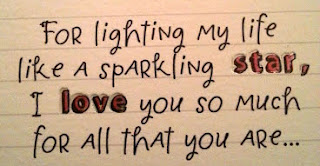 For lighting my life
like a sparkling star,
I love you so much
for all that you are...